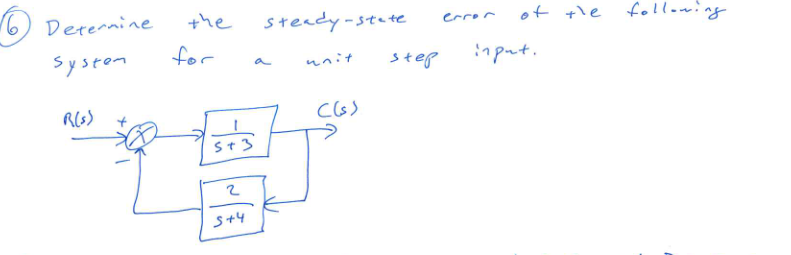 6) Determine the steady-state error of the following
system for a unit step input.
R(s) + C(s)
1
s+3
−
2
s+4